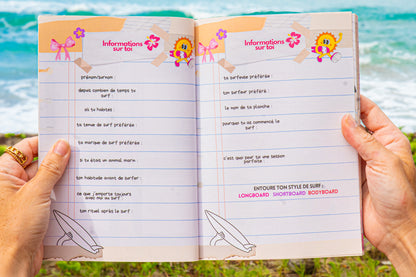 Informations
sur toi
prénom/surnom :
depuis combien de temps tu
surf :
où tu habites :
ta tenue de surf préférée :
ta marque de surf préférée :
si tu étais un animal marin :
ton habitude avant de surfer :
ce que j'emporte toujours
avec moi au surf :
ton rituel après le surf :
Informations
sur toi
ta surfwear préférée :
ton surfeur préféré :
le nom de ta planche :
pourquoi tu as commencé le
surf :
c'est quoi pour toi une session
parfaite :
ENTOURE TON STYLE DE SURF :
LONGBOARD SHORTBOARD BODYBOARD